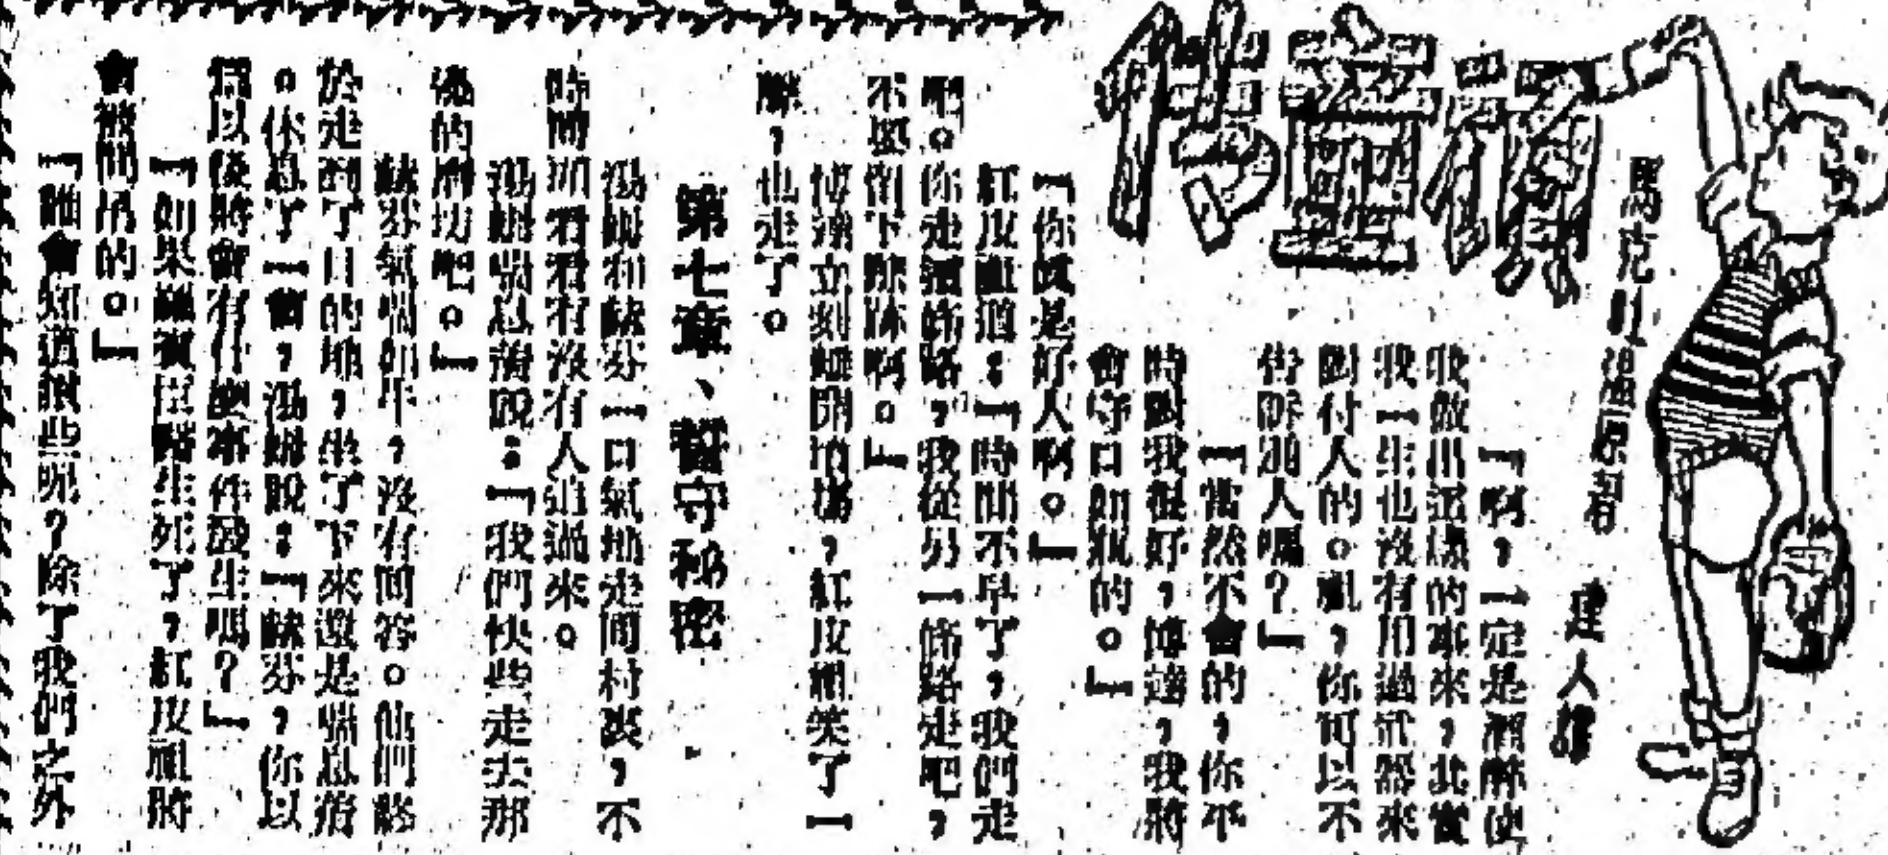 頑童傳
馬克吐溫原著 建人譯
「啊,一定是酒醉使
我做出這樣的事來,其實
我一生也沒有用過武器來
對付人的。,你可以不
告訴別人嗎?」
「當然不會的,你平
時對我很好,博達,我將
會守口如瓶的。」
「你眞是好人啊。」
紅皮道:「時間不早了,我們走
吧。你走這條路,我從另一條路走吧,
不要留下踪跡啊。」
博達立刻離開墳場,紅皮笑了一
聲,也走了。
第七章、誓守秘密
湯和赫芬一口氣地走回村裏,不
時回頭看看有沒有人追過來。
湯喘息着說:「我們快些走去那
邊的磨坊吧。」
赫芬氣喘如牛,沒有回答。他們終
於走到了目的地,坐了下來還是喘息着
。休息了一會,湯說:「赫芬,你以
為以後將會有什麼事件發生嗎?」
「如果羅賓臣醫生死了,紅皮將
會被問吊的。」
「誰會知道這些呢?除了我們之外